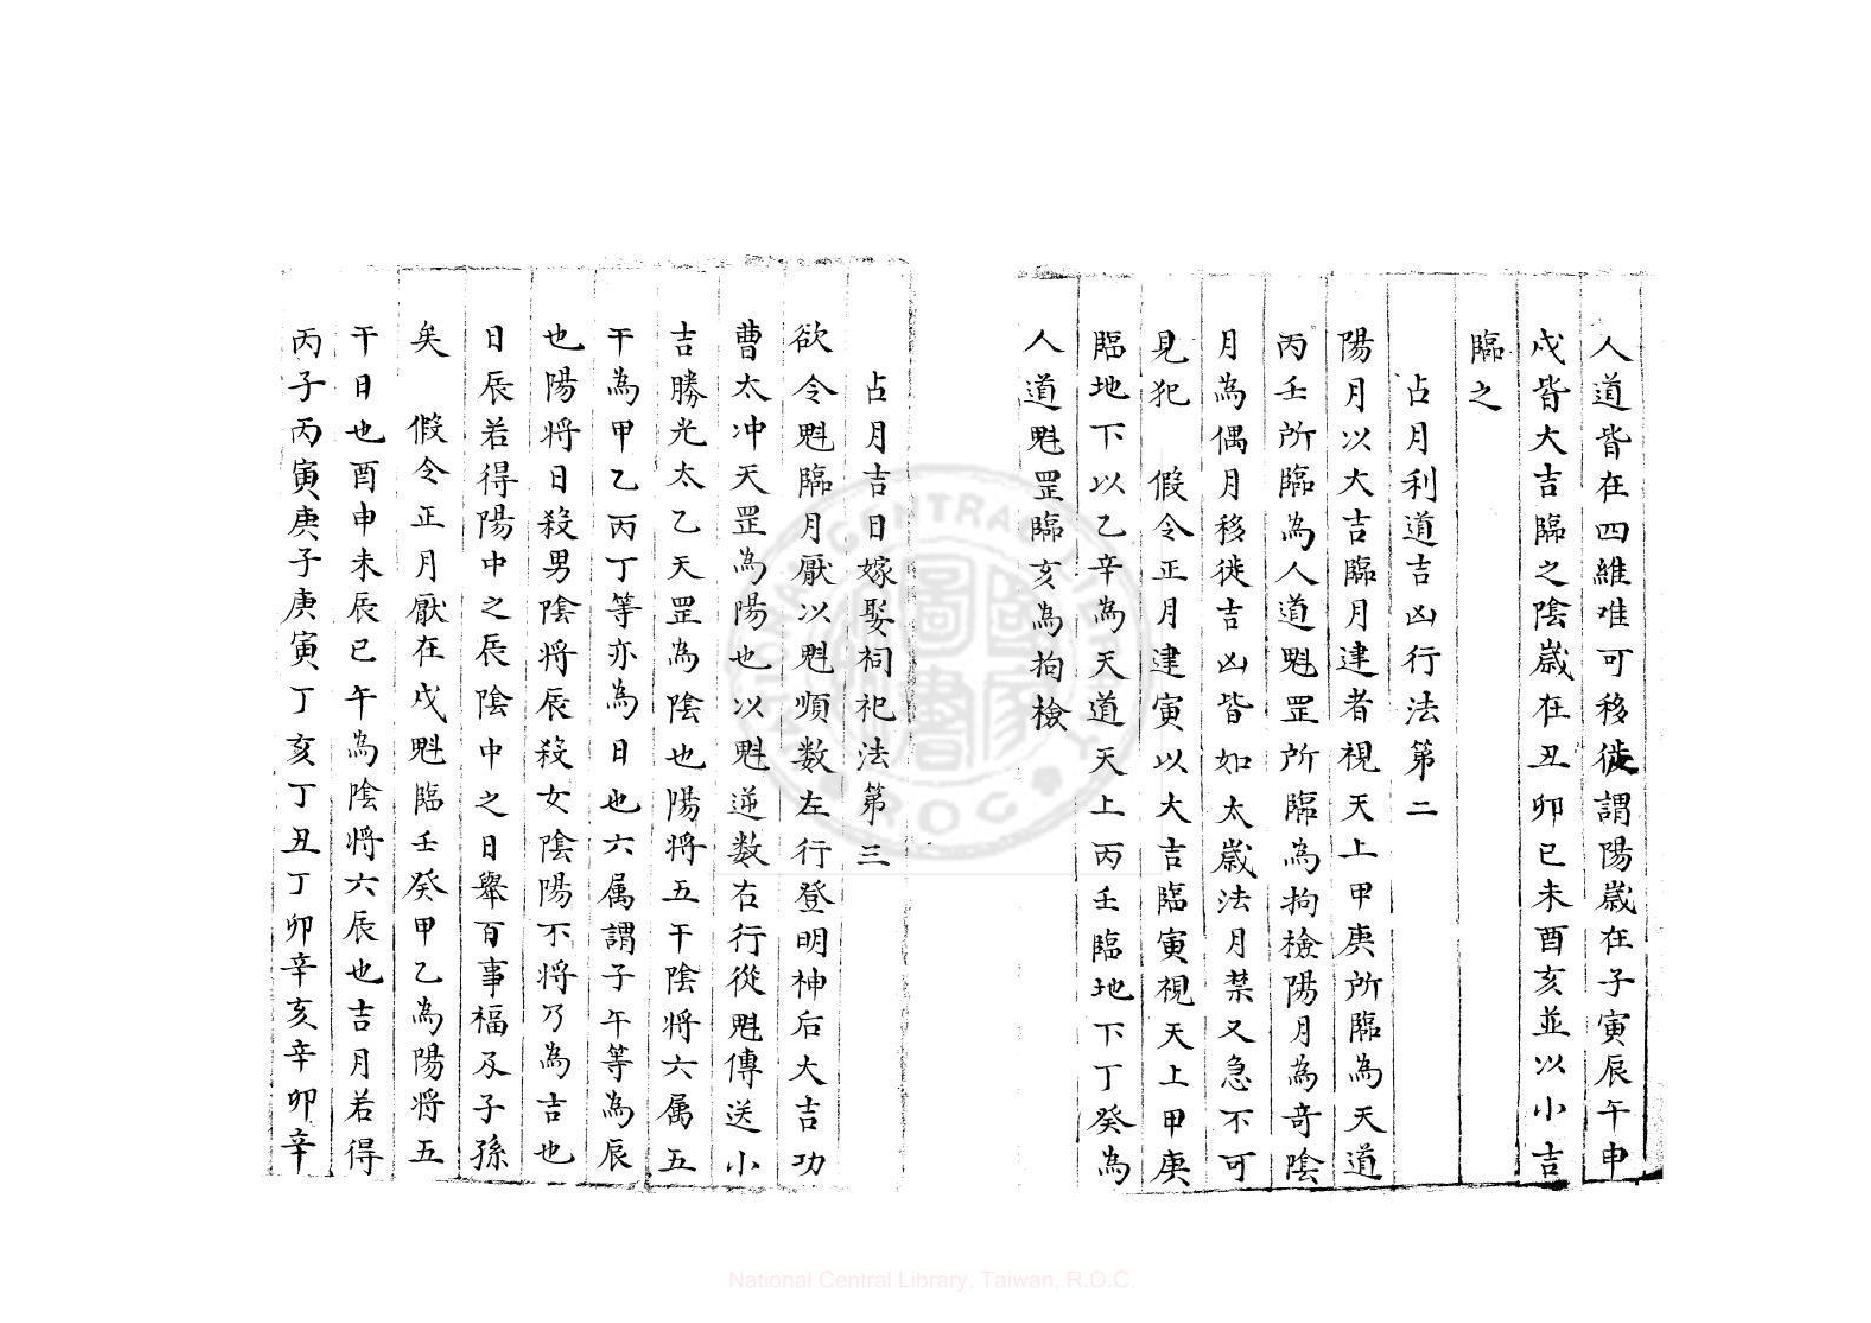 人道皆在四維难可移徙謂陽歳在子寅辰午申
戌皆大吉臨之陰歳在丑卯巳未酉亥並以小吉
臨之
占月利道吉凶行法第二
陽月以大吉臨月建者視天上甲庚所臨為天道
丙壬所臨為人道魁罡所臨為拘檢陽月為奇陰
月為偶月移徙吉凶皆如太歳法月禁又急不可
見犯　假令正月建寅以大吉臨寅視天上甲庚
臨地下以乙辛為天道天上丙壬臨地下丁癸為
人道魁罡臨亥為拘檢
占月吉日嫁娶祠祀法第三
欲令魁臨月厭以魁順数左行登明神后大吉功
曹太冲天罡為陽也以魁逆数右行從魁傳送小
吉勝光太乙天罡為陰也陽将五干陰将六属五
干為甲乙丙丁等亦為日也六属謂子午等為辰
也陽将日殺男陰将辰殺女陰陽不将乃為吉也
日辰若得陽中之辰陰中之日舉百事福及子孫
矣　假令正月厭在戌魁臨壬癸甲乙為陽将五
干日也酉申未辰巳午為陰将六辰也吉月若得
丙子丙寅庚子庚寅丁亥丁丑丁卯辛亥辛卯辛
National Central Library, Taiwan, R.O.C.